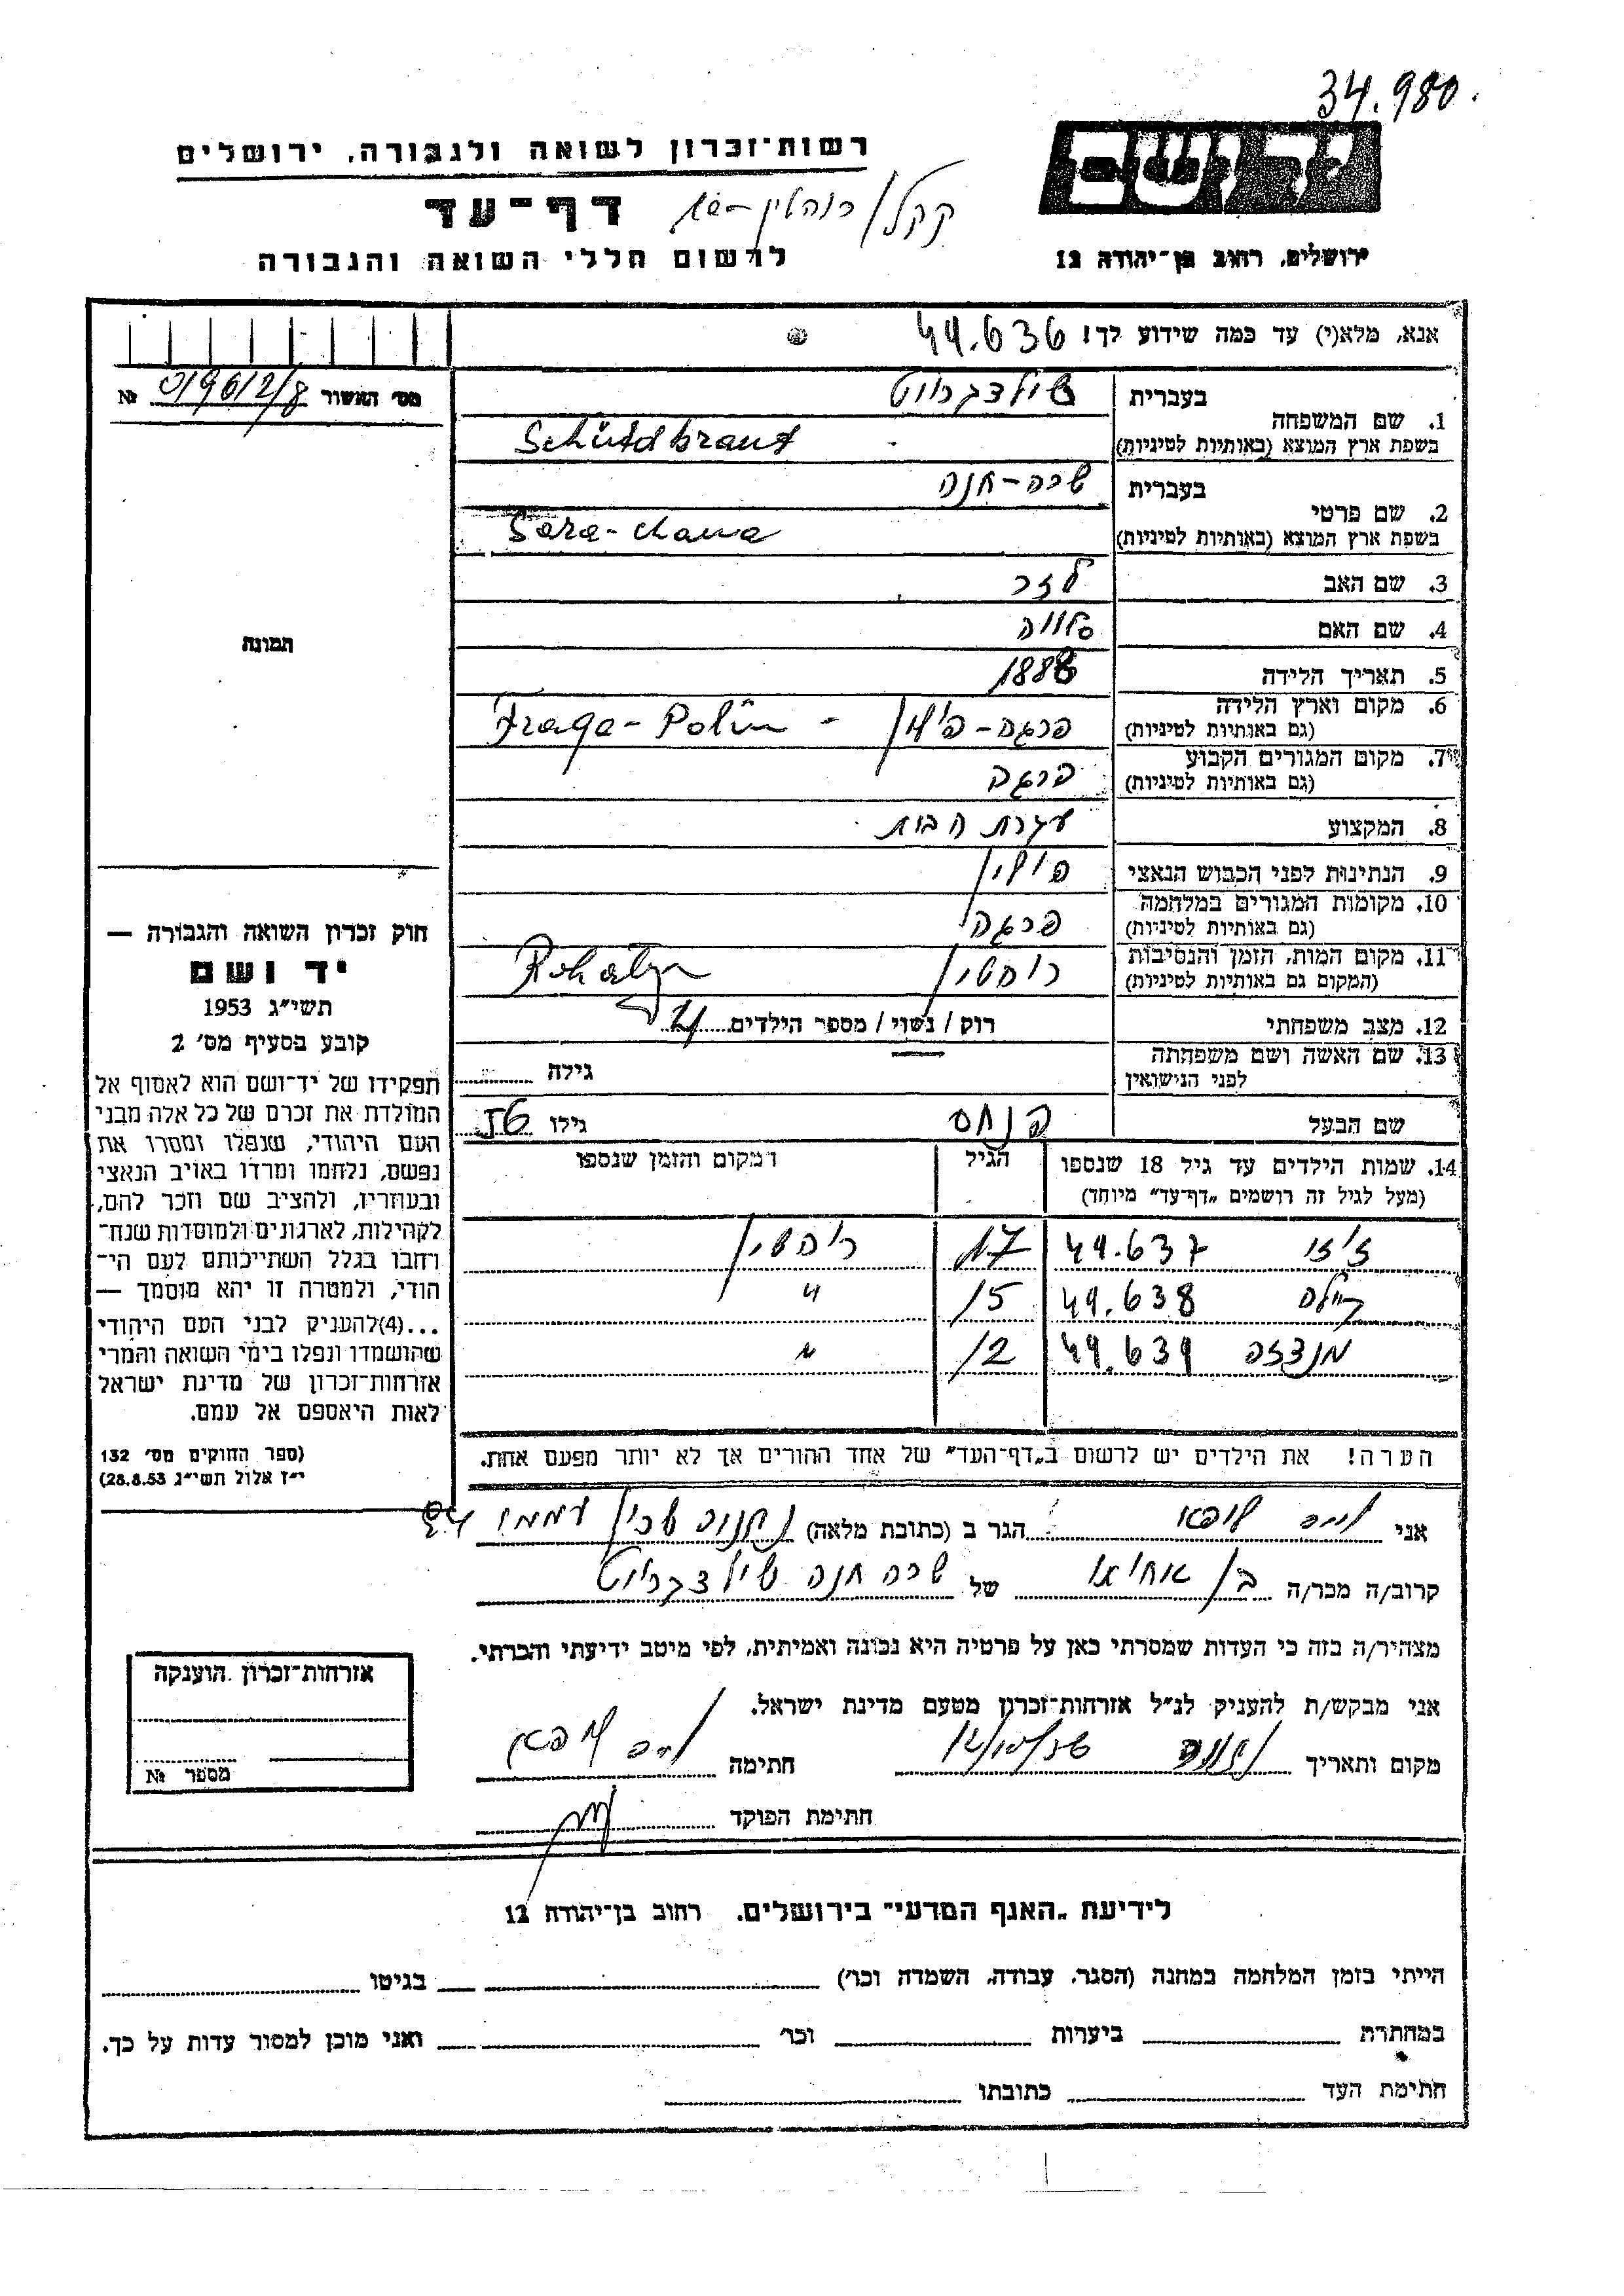 34.980
רשות־זכרון לשואה ולגבורה, ירושלים
יד ושם
דף־עד
לרשום חללי השואה והגבורה
ירושלים, רחוב בן־יהודה 12
אנא, מלא(י) עד כמה שידוע לך! 44.636
מס' האשור № 019612/8
1. שם המשפחה
בעברית שילדברויט
בשפת ארץ המוצא (באותיות לטיניות)
2. שם פרטי
בעברית שרה-חנה
בשפת ארץ המוצא (באותיות לטיניות) Sara-chana
3. שם האב לזר
4. שם האם
5. תאריך הלידה 1888
6. מקום וארץ הלידה
(גם באותיות לטיניות) פרגה-פולין - Fraga-Polin
7. מקום המגורים הקבוע
(גם באותיות לטיניות) פרגה
8. המקצוע עקרת הבית
9. הנתינות לפני הכבוש הנאצי פולין
10. מקומות המגורים במלחמה
(גם באותיות לטיניות) פרגה
11. מקום המות, הזמן והנסיבות
(המקום גם באותיות לטיניות) רוהטין Rohatyn
12. מצב משפחתי רוק / נשוי / מספר הילדים
13. שם האשה ושם משפחתה
לפני הנישואין גילה
שם הבעל פנחס גילו 56
תמונה
חוק זכרון השואה והגבורה —
יד ושם
תשי״ג 1953
קובע בסעיף מס' 2
תפקידו של יד־ושם הוא לאסוף אל
המולדת את זכרם של כל אלה מבני
העם היהודי, שנפלו ומסרו את
נפשם, נלחמו ומרדו באויב הנאצי
ובעוזריו, ולהציב שם וזכר להם,
לקהילות, לארגונים ולמוסדות שנח־
רחבו בגלל השתייכותם לעם הי־
הודי, ולמטרה זו יהא מוסמך —
...(4)להעניק לבני העם היהודי
שהושמדו ונפלו בימי השואה והמרי
אזרחות־זכרון של מדינת ישראל
לאות היאספם אל עמם.
(ספר החוקים מס' 132
י״ז אלול תשי״ג 28.8.53)
14. שמות הילדים עד גיל 18 שנספו
(מעל לגיל זה רושמים „דף־עד” מיוחד)
הגיל
המקום והזמן שנספו
זיזי 44.637 17 רוהטין
44.638 15 "
44.639 12 "
הערה! את הילדים יש לרשום ב„דף־העד” של אחד ההורים אך לא יותר מפעם אחת.
אני הגר ב (כתובת מלאה) נתניה שכון עממי
קרוב/ה מכר/ה בן אחותו של שרה חנה שילדברויט
מצהיר/ה בזה כי העדות שמסרתי כאן על פרטיה היא נכונה ואמיתית, לפי מיטב ידיעתי והכרתי.
אני מבקש/ת להעניק לנ״ל אזרחות־זכרון מטעם מדינת ישראל.
מקום ותאריך נתניה חתימה
חתימת הפוקד
אזרחות־זכרון הוענקה
מספר №
לידיעת „האגף המדעי” בירושלים, רחוב בן־יהודה 12
הייתי בזמן המלחמה במחנה (הסגר, עבודה, השמדה וכו') בגיטו
במחתרת ביערות וכו' ואני מוכן למסור עדות על כך.
חתימת העד כתובתו